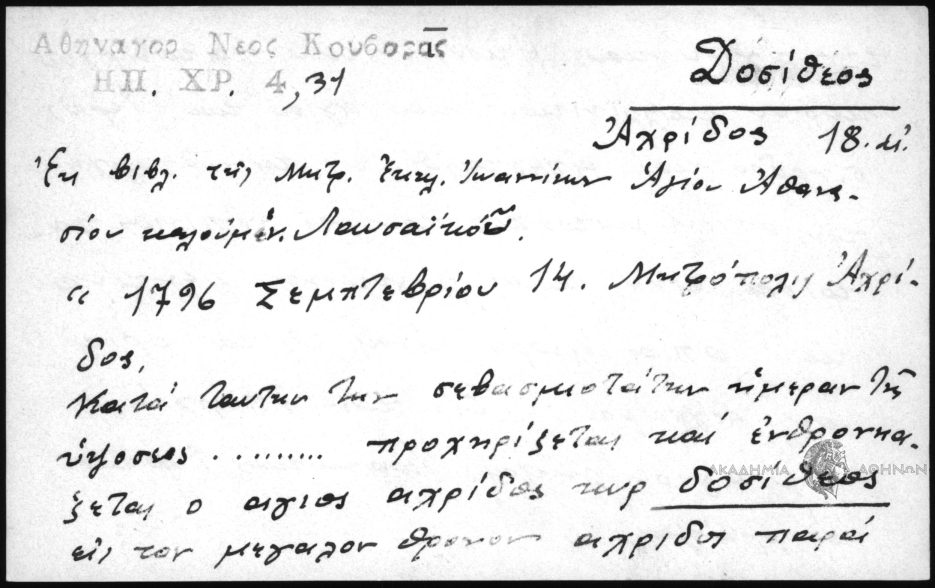 Αθηναγορ Νεος Κουβαρᾶς
ΗΠ. ΧΡ. 4, 31
Δοσίθεος
Ἀχρίδος 18. αἰ.
Ἐκ βιβλ. τῆς Μητρ. Ἐκκλ. Ἰωαννίνων Ἁγίου Ἀθανα-
σίου καλούμεν. Λαυσαϊκοῦ.
" 1796 Σεμπτεβρίου 14. Μητρόπολις Ἀχρί-
δος,
Κατά ταυτην την σεβασμιοτάτην ἡμεραν τῆς
ὑψοσεος ......... προχηρίζεται και ἐνθρονια-
ζεται ο αγιος αχρίδος κυρ δοσίθεος
εἰς τον μεγαλον θρονον αχριδος παρά
ΑΚΑΔΗΜΙΑ ΑΘΗΝΩΝ